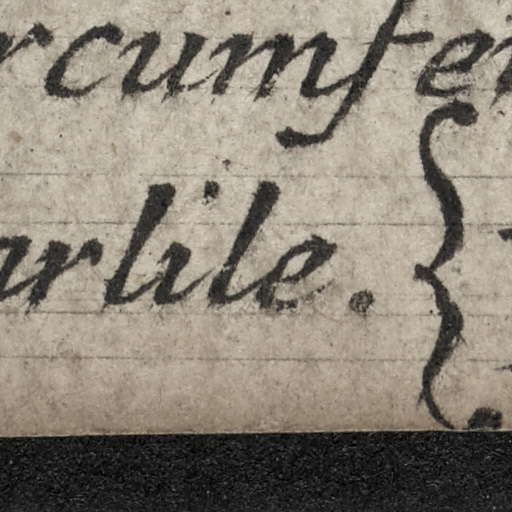 rcumfer
arlile.